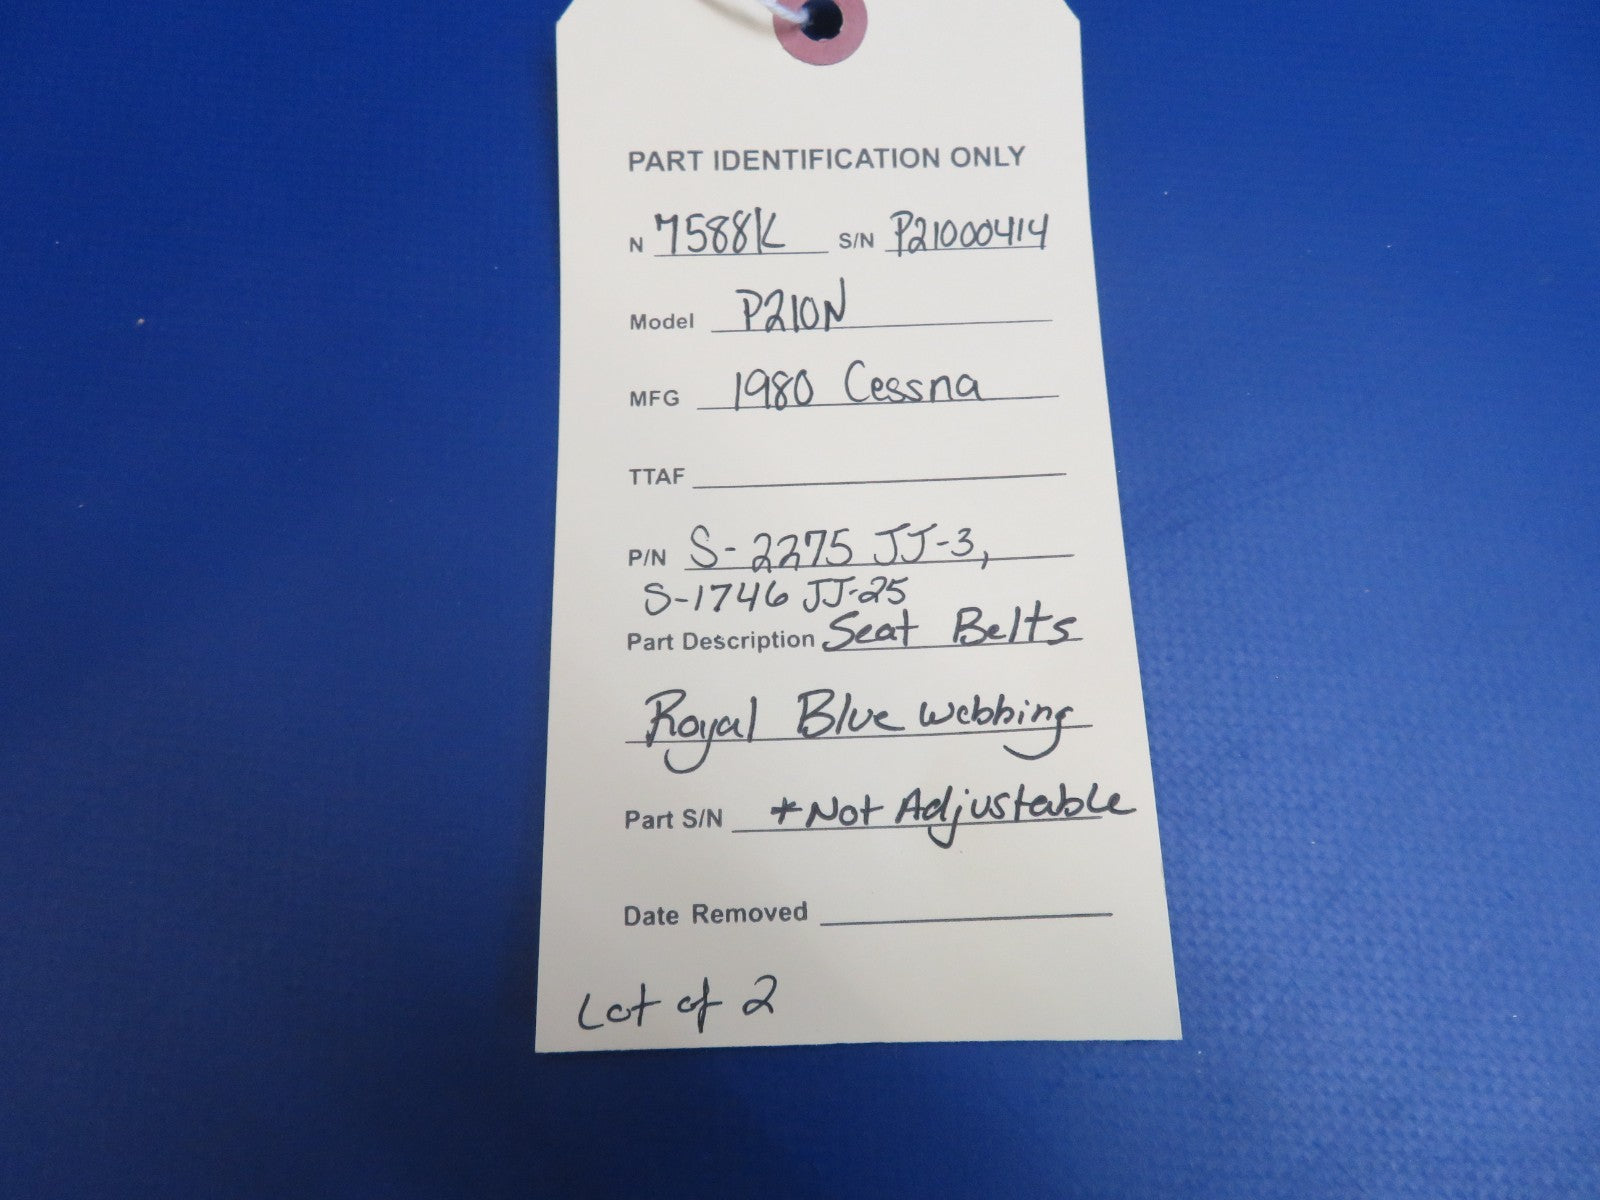 PART IDENTIFICATION ONLY
N 7588K S/N P21000414
Model P210N
MFG 1980 Cessna
TTAF
P/N S-2275 JJ-3,
S-1746 JJ-25
Part Description Seat Belts
Royal Blue webbing
Part S/N *Not Adjustable
Date Removed
Lot of 2